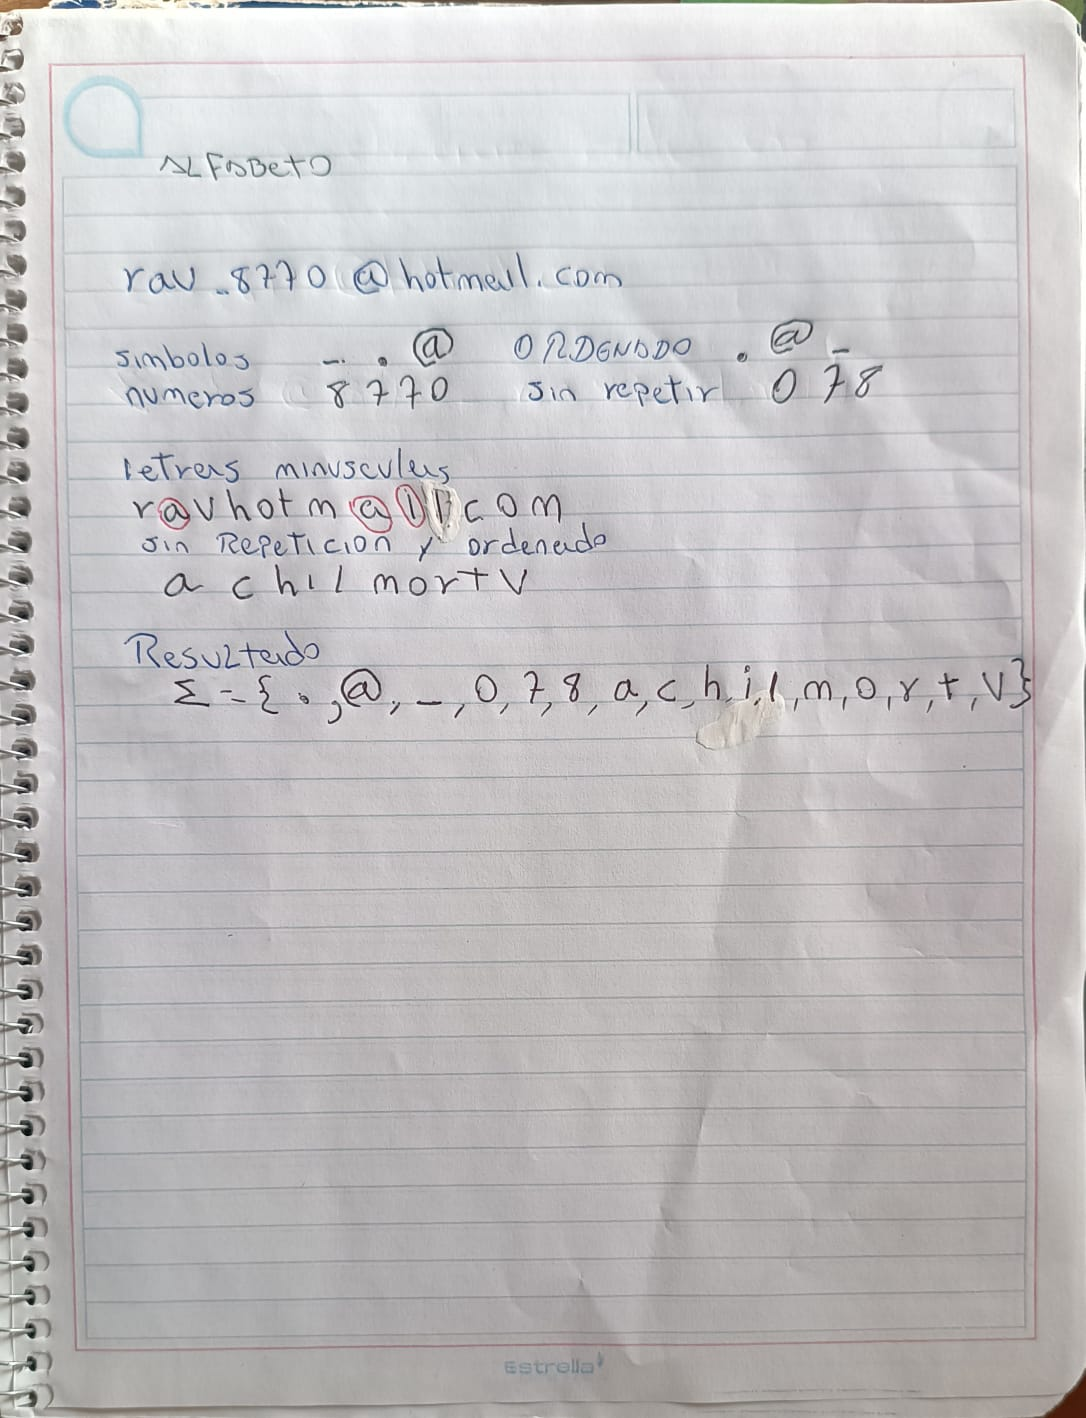 ALFABETO
rav_8770@hotmail.com
simbolos _ . @ ORDENADO . @ _
numeros 8 7 7 0 sin repetir 0 7 8
letras minusculas
r a v h o t m a i l c o m
sin Repeticion y ordenado
a c h i l m o r t v
Resultado
Σ = { . , @, _, 0, 7, 8, a, c, h, i, l, m, o, r, t, v}
Estrella